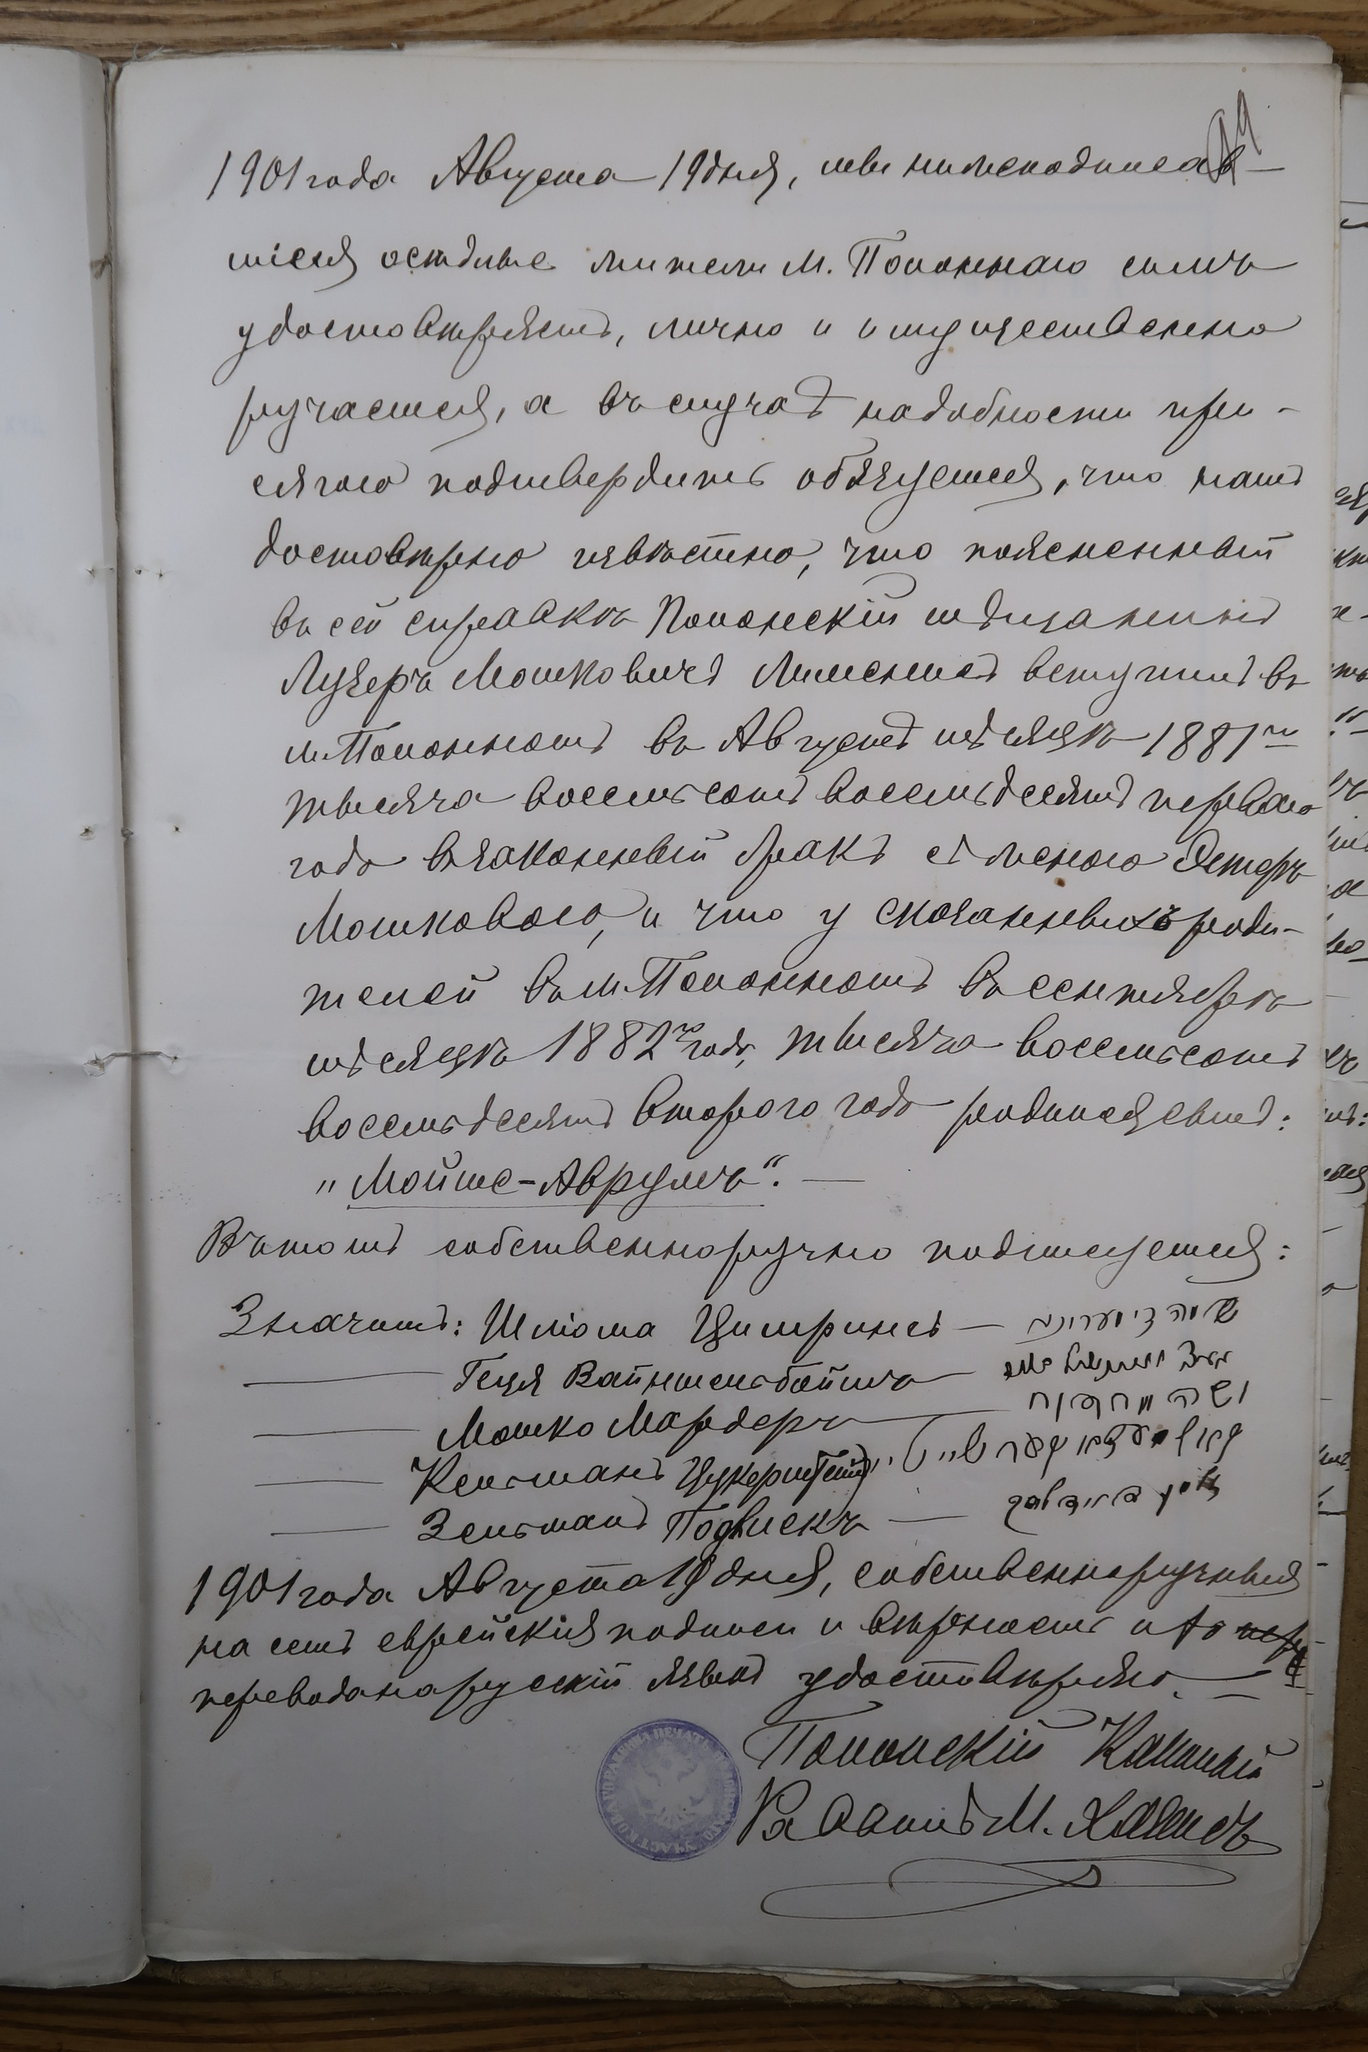 99
1901 года Августа 19 дня, мы нижеподписав-
шіеся оседлые жители м. Полоннаго симъ
удостовѣряемъ, лично и имущественно
ручаемся, а въ случаѣ надобности при-
сягою подтвердить обязуемся, что намъ
достовѣрно извѣстно, что поясненный
въ сей справкѣ Полонскій мѣщанинъ
Лузеръ Мошковичъ вступилъ въ
м. Полонномъ въ Августѣ мѣсяцѣ 1881 го
тысяча восемьсотъ восемьдесятъ перваго
года въ законный бракъ съ женою Эстеръ
Мошковою, и что у сказанныхъ роди-
телей въ м. Полонномъ въ сентябрѣ
мѣсяцѣ 1882 го года, тысяча восемьсотъ
восемьдесятъ второго года родился сынъ:
"Мойше-Аврумъ". —
Въ томъ собственноручно подписуемся:
Значитъ: Шліома Цимринъ —
— Геця Вайнтельбоймъ —
— Мошко Мардеръ —
— Кельманъ Цукерштейнъ
— Зельманъ Подлискъ —
1901 года Августа 19 дня, собственноручныя
на семъ еврейскія подписи и вѣрность ихъ
перевода на русскій языкъ удостовѣряю. —
Полонскій Казенный
Раввинъ М.